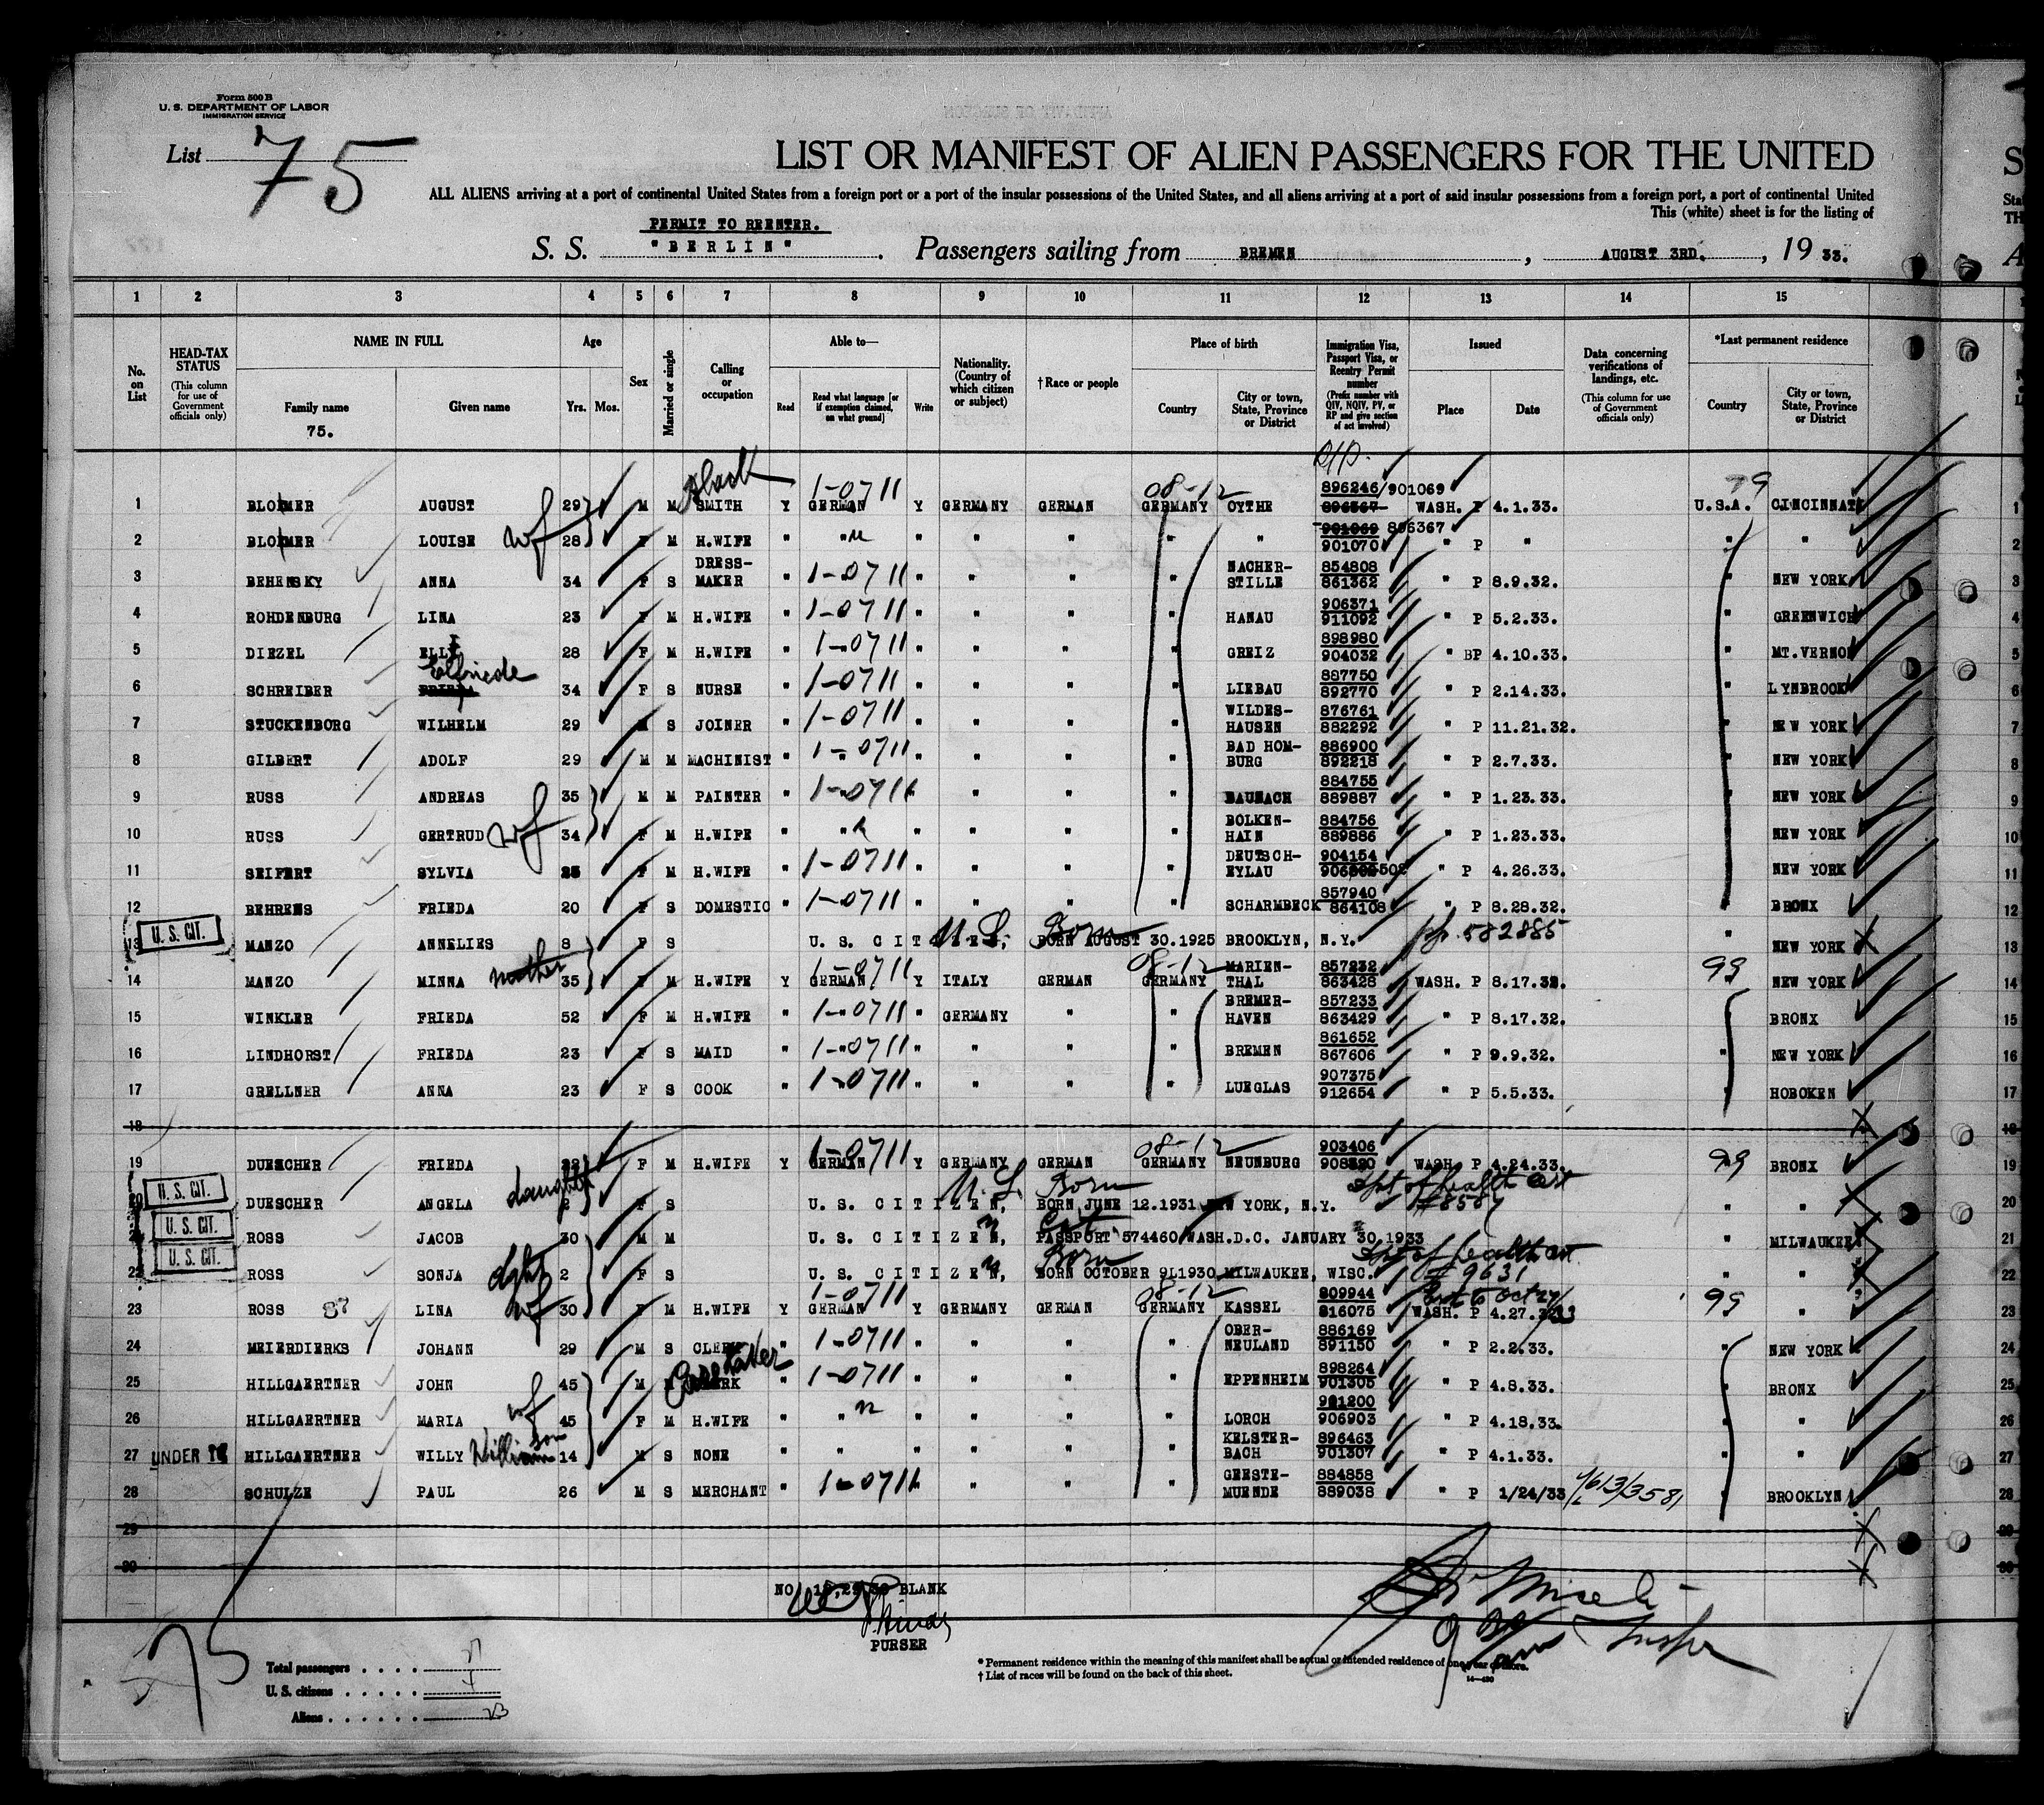 Form 500 B
U. S. DEPARTMENT OF LABOR
IMMIGRATION SERVICE
List 75
LIST OR MANIFEST OF ALIEN PASSENGERS FOR THE UNITED
ALL ALIENS arriving at a port of continental United States from a foreign port or a port of the insular possessions of the United States, and all aliens arriving at a port of said insular possessions from a foreign port, a port of continental United
This (white) sheet is for the listing of
PERMIT TO REENTER.
S. S. "BERLIN". Passengers sailing from BREMEN, AUGUST 3RD., 1933.
1 2 3 4 5 6 7 8 9 10 11 12 13 14 15
No. on List
HEAD-TAX STATUS (This column for use of Government officials only)
NAME IN FULL
Family name
75.
Given name
Age
Yrs. Mos.
Sex
Married or single
Calling or occupation
Able to—
Read
Read what language [or if exemption claimed, on what ground]
Write
Nationality. (Country of which citizen or subject)
† Race or people
Place of birth
Country
City or town, State, Province or District
Immigration Visa, Passport Visa, or Reentry Permit number (Prefix number with QIV, NQIV, PV, or RP and give section of act involved)
Issued
Place
Date
Data concerning verifications of landings, etc. (This column for use of Government officials only)
*Last permanent residence
Country
City or town, State, Province or District
1 AUGUST 29 M M Black SMITH Y GERMAN 1-0711 Y GERMANY GERMAN 08-12 GERMANY OYTHE 896246/901069 WASH. P 4.1.33. U.S.A. CINCINNATI 1
2 LOUISE wf 28 F M H.WIFE " " " " " " " 896367 901070 " P " " " 2
3 BEHENSKY ANNA 34 F S DRESS-MAKER " 1-0711 " " " " NACHER-STILLE 854808 861362 " P 8.9.32. " NEW YORK 3
4 ROHDENBURG LINA 23 F M H.WIFE " 1-0711 " " " " HANAU 906371 911092 " P 5.2.33. " GREENWICH 4
5 DIEZEL 28 F M H.WIFE " 1-0711 " " " " GREIZ 898980 904032 " BP 4.10.33. " MT.VERNON 5
6 SCHREIBER Elfriede 34 F S NURSE " 1-0711 " " " " LIEBAU 887750 892770 " P 2.14.33. " LYNBROOK 6
7 STUCKENBORG WILHELM 29 M S JOINER " 1-0711 " " " " WILDES-HAUSEN 876761 882292 " P 11.21.32. " NEW YORK 7
8 GILBERT ADOLF 29 M M MACHINIST " 1-0711 " " " " BAD HOM-BURG 886900 892218 " P 2.7.33. " NEW YORK 8
9 RUSS ANDREAS 35 M M PAINTER " 1-0711 " " " " BAUNACH 884755 889887 " P 1.23.33. " NEW YORK 9
10 RUSS GERTRUD wf 34 F M H.WIFE " " " " " " BOLKEN-HAIN 884756 889886 " P 1.23.33. " NEW YORK 10
11 SEIFERT SYLVIA F M H.WIFE " 1-0711 " " " " DEUTSCH-EYLAU 904154 " P 4.26.33. " NEW YORK 11
12 BEHRENS FRIEDA 20 F S DOMESTIC " 1-0711 " " " " SCHARMBECK 857940 864108 " P 8.28.32. " BRONX 12
13 U. S. CIT. MANZO ANNELIES 8 F S U. S. CITIZEN, BORN AUGUST 30.1925 BROOKLYN, N.Y. pp. 582885 " NEW YORK 13
14 MANZO MINNA mother 35 F M H.WIFE Y GERMAN 1-0711 Y ITALY GERMAN 08-12 GERMANY MARIEN-THAL 857232 863428 WASH. P 8.17.32. 99 NEW YORK 14
15 WINKLER FRIEDA 52 F M H.WIFE " 1-0711 " GERMANY " " BREMER-HAVEN 857233 863429 " P 8.17.32. BRONX 15
16 LINDHORST FRIEDA 23 F S MAID " 1-0711 " " " " BREMEN 861652 867606 " P 9.9.32. " NEW YORK 16
17 GRELLNER ANNA 23 F S COOK " 1-0711 " " " " LUEGLAS 907375 912654 " P 5.5.33. HOBOKEN 17
18
19 DUESCHER FRIEDA F M H.WIFE Y GERMAN 1-0711 Y GERMANY GERMAN 08-12 GERMANY NEUNBURG 903406 WASH. P 4.24.33. 99 BRONX 19
20 U. S. CIT. DUESCHER ANGELA daught 2 F S U. S. CITIZEN, BORN JUNE 12.1931 NEW YORK, N.Y. Dpt of health Cert " " 20
21 U. S. CIT. ROSS JACOB 30 M M U. S. CITIZEN, PASSPORT 574460 WASH.D.C. JANUARY 30.1933 " MILWAUKEE 21
22 U. S. CIT. ROSS SONJA dght 2 F S U. S. CITIZEN, BORN OCTOBER 9.1930 MILWAUKEE, WISC. Dpt of health Cert # 9631 " " 22
23 ROSS LINA wf 30 F M H.WIFE Y GERMAN 1-0711 Y GERMANY GERMAN 08-12 GERMANY KASSEL 809944 816075 WASH. P 4.27. 99 " 23
24 MEIERDIERKS JOHANN 29 M S CLERK " 1-0711 " " " " OBER-NEULAND 886169 891150 " P 2.2.33. " NEW YORK 24
25 HILLGAERTNER JOHN 45 M Caretaker " 1-0711 " " " " EPPENHEIM 898264 901305 " P 4.8.33. BRONX 25
26 HILLGAERTNER MARIA wf 45 F M H.WIFE " " " " " " LORCH 901200 906903 " P 4.18.33. " " 26
27 UNDER 16 HILLGAERTNER WILLY William son 14 M S NONE " " " " " " KELSTER-BACH 896463 901307 " P 4.1.33. " " 27
28 SCHULZE PAUL 26 M S MERCHANT " 1-0711 " " " " GEESTE-MUENDE 884858 889038 " P 1/24/33 " BROOKLYN 28
29
30
NO. 18,29,30 BLANK
PURSER
75
Total passengers . . . . 27
U. S. citizens . . . . . 4
Aliens . . . . . . 23
* Permanent residence within the meaning of this manifest shall be actual or intended residence of one year or more.
† List of races will be found on the back of this sheet.